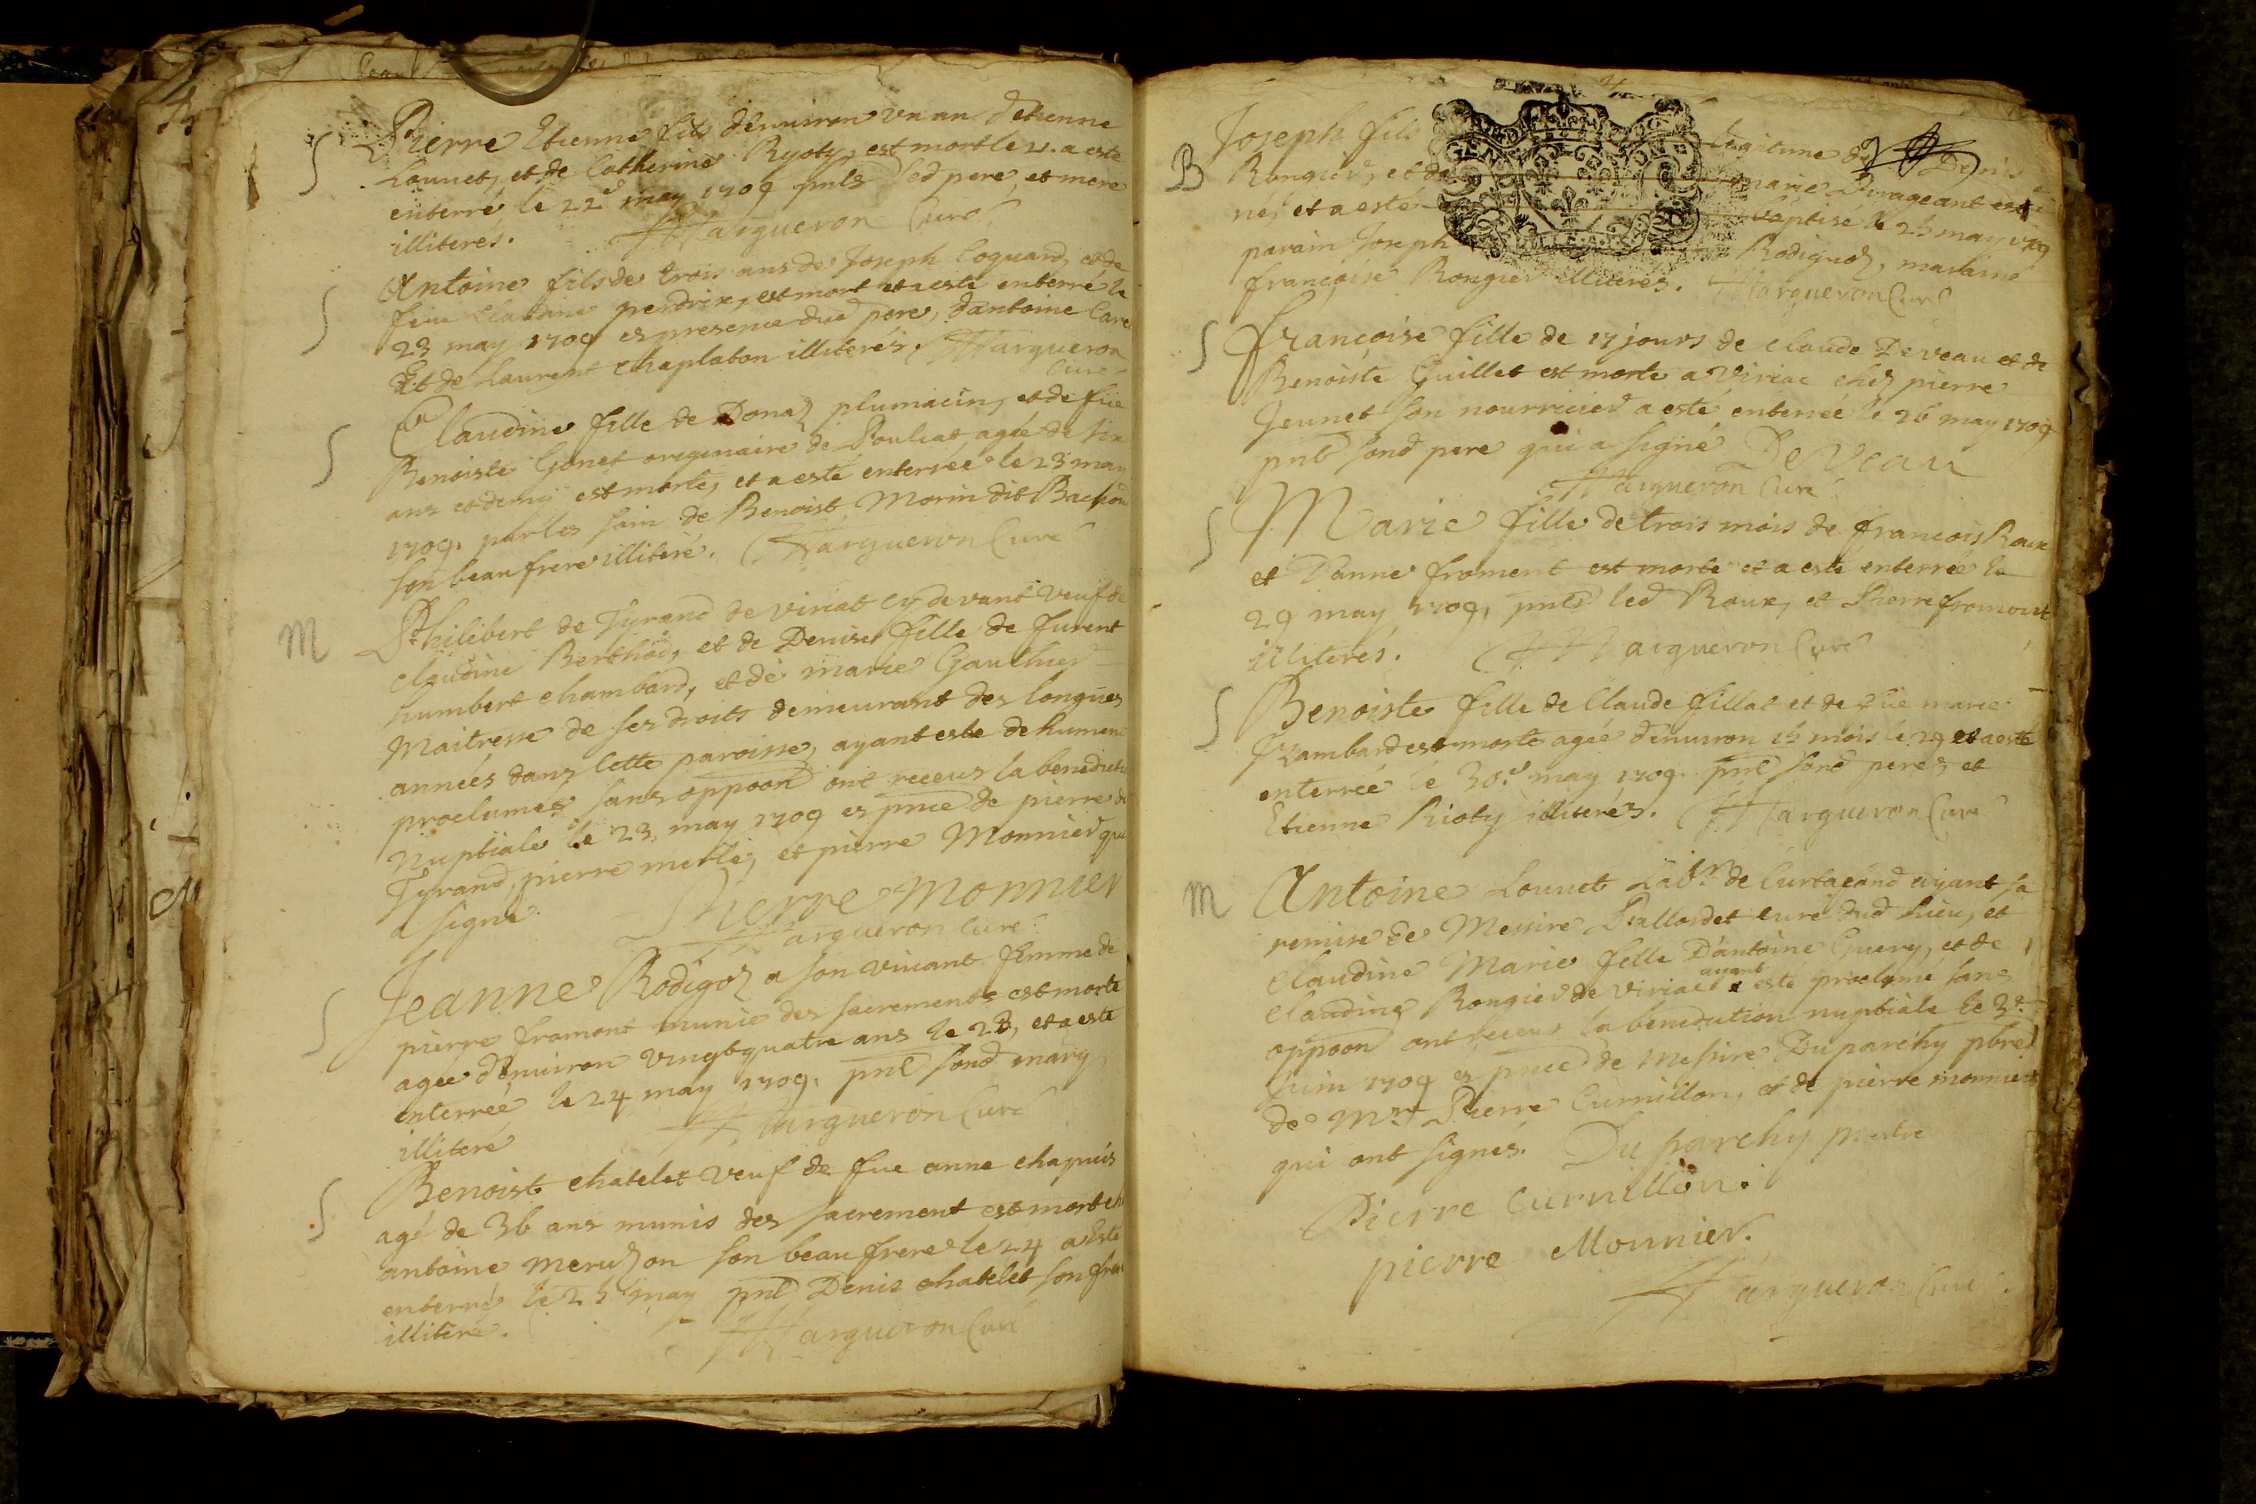 S
Pierre Etienne fils d'enuiron vn an d'etienne
Lounet, et de Catherine Ryoty est mort le 21. a este
enterré le 22e may 1709 pnts led pere, et mere
illiterés. Margueron Curé
S
Antoine fils de trois ans de Joseph Coquard, et de
feue Claudine perdrix, est mort et a esté enterré le
23 may 1709 es presence dud pere, d'antoine
Et de Laurent Chaplabon illiterés. Margueron
Curé
S
Claudine fille de Donaz plumacin, et de füe
Benoiste Gonet originaire de Pouliat agée de six
ans et demy est morte, et a esté enterrée le 23 may
1709. par les soin de Benoist Morin dit
son beau frere illiteré. Margueron Curé
M
Philibert de Tyrand de viriat cy devant veuf de
Claudine Berthod, et de Denise fille de furent
humbert chambard, et de marie Gauthier
Maitresse de ses droits demeurant des longues
années dans Cette paroisse, ayant este dehument
proclumés sans oppoon ont receus la benedicti
Nuptiale le 23 may 1709 es pnce de pierre de
Tyrand, pierre merle, et pierre Monnier qui
a signé. Pierre monnier
Margueron Curé
S
Jeanne Rodigoz a son vivant femme de
pierre fromont munie des sacrements est morte
agée d'enuiron vingt quatre ans le 23, et a este
enterrée le 24 may 1709. pnt sond mary
illiteré Margueron Curé
S
Benoist chatelet veuf de fue anne chapuis
agé de 36 ans munis des sacrement est mort
antoine meruzon son beau frere le 24 a Esté
enterré le 25 may pnt Denis chatelet son
illiteré. Margueron Curé
B
Joseph fils legitime de Denis
Rongier, et de marie Durageant est
né, et a esté baptisé le 25 may 1709
parain Joseph Rodiguoz, maraine
françoise Rongier illiterés. Margueron Curé
S
françoise fille de 17 jours de claude Deveau et de
Benoiste Guillet est morte a Viriac chez pierre
Jeunet son nourricier a esté enterrée le 26 may 1709
pnt sond pere qui a signé De Veau
Margueron Curé
S
Marie fille de trois mois de francois Roux
et D'anne froment est morte et a esté enterrée le
29 may 1709, pnts led Roux, et Pierre fromont
illiterés. Margueron Curé
S
Benoiste fille de Claude fillat et de füe marie
est morte agée denuiron 15 mois le 29 et a esté
enterrée le 30.e may 1709. pnt sond pere, et
Etienne Rioty illiterés. Margueron Curé
M
Antoine Lounet Labr. de Curtaeand ayant sa
remise de Messire Pallordet curé dud Lieu, et
Claudine Marie fille D'antoine Guery, et de
Claudine Rongier de viriat ayant esté proclamé sans
oppoon ont receus la benediction nuptiale le 3e
Juin 1709 es pnce de messire Duparchy pbre
de Mre Pierre Curnillon, et de pierre monnier
qui ont signés. Du parchy prestre
Pierre Curnillon.
pierre Monnier.
Margueron Curé